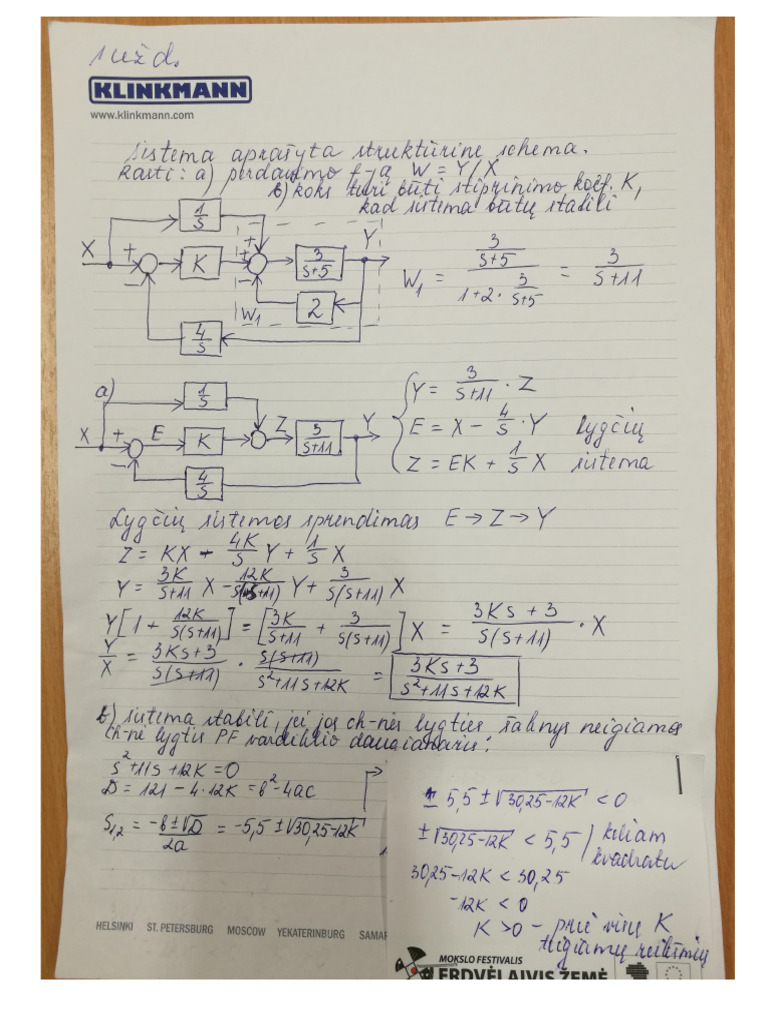 1 užd.
KLINKMANN
www.klinkmann.com
Sistema aprašyta struktūrine schema.
Rasti: a) perdavimo f-ą W = Y/X
b) koks turi būti stiprinimo koef. K,
kad sistema būtų stabili
1/S
X + − K + + − 3/(S+5) Y
W₁ 2
4/S
W₁ = (3/(S+5)) / (1+2·3/(S+5)) = 3/(S+11)
a) 1/S
X + − E K Z 3/(S+11) Y
4/S
Y = 3/(S+11) · Z
E = X − 4/S · Y Lygčių
Z = EK + 1/S X sistema
Lygčių sistemos sprendimas E → Z → Y
Z = KX − 4K/S Y + 1/S X
Y = 3K/(S+11) X − 12K/(S(S+11)) Y + 3/(S(S+11)) X
Y[1 + 12K/(S(S+11))] = [3K/(S+11) + 3/(S(S+11))] X = (3KS+3)/(S(S+11)) · X
Y/X = (3KS+3)/(S(S+11)) · S(S+11)/(S²+11S+12K) = (3KS+3)/(S²+11S+12K)
b) sistema stabili, jei jos ch-nės lygties šaknys neigiamos
Ch-nė lygtis PF vardiklio daugianaris:
S²+11S+12K=0
D = 121 − 4·12K = b²−4ac
S₁,₂ = (−b±√D)/2a = −5,5 ± √(30,25−12K)
± 5,5 ± √(30,25−12K) < 0
±√(30,25−12K) < 5,5 / keliam
kvadratu
30,25−12K < 30,25
−12K < 0
K > 0 – prie visų K
teigiamų reikšmių
HELSINKI ST. PETERSBURG MOSCOW YEKATERINBURG SAMAR
MOKSLO FESTIVALIS
ERDVĖLAIVIS ŽEMĖ